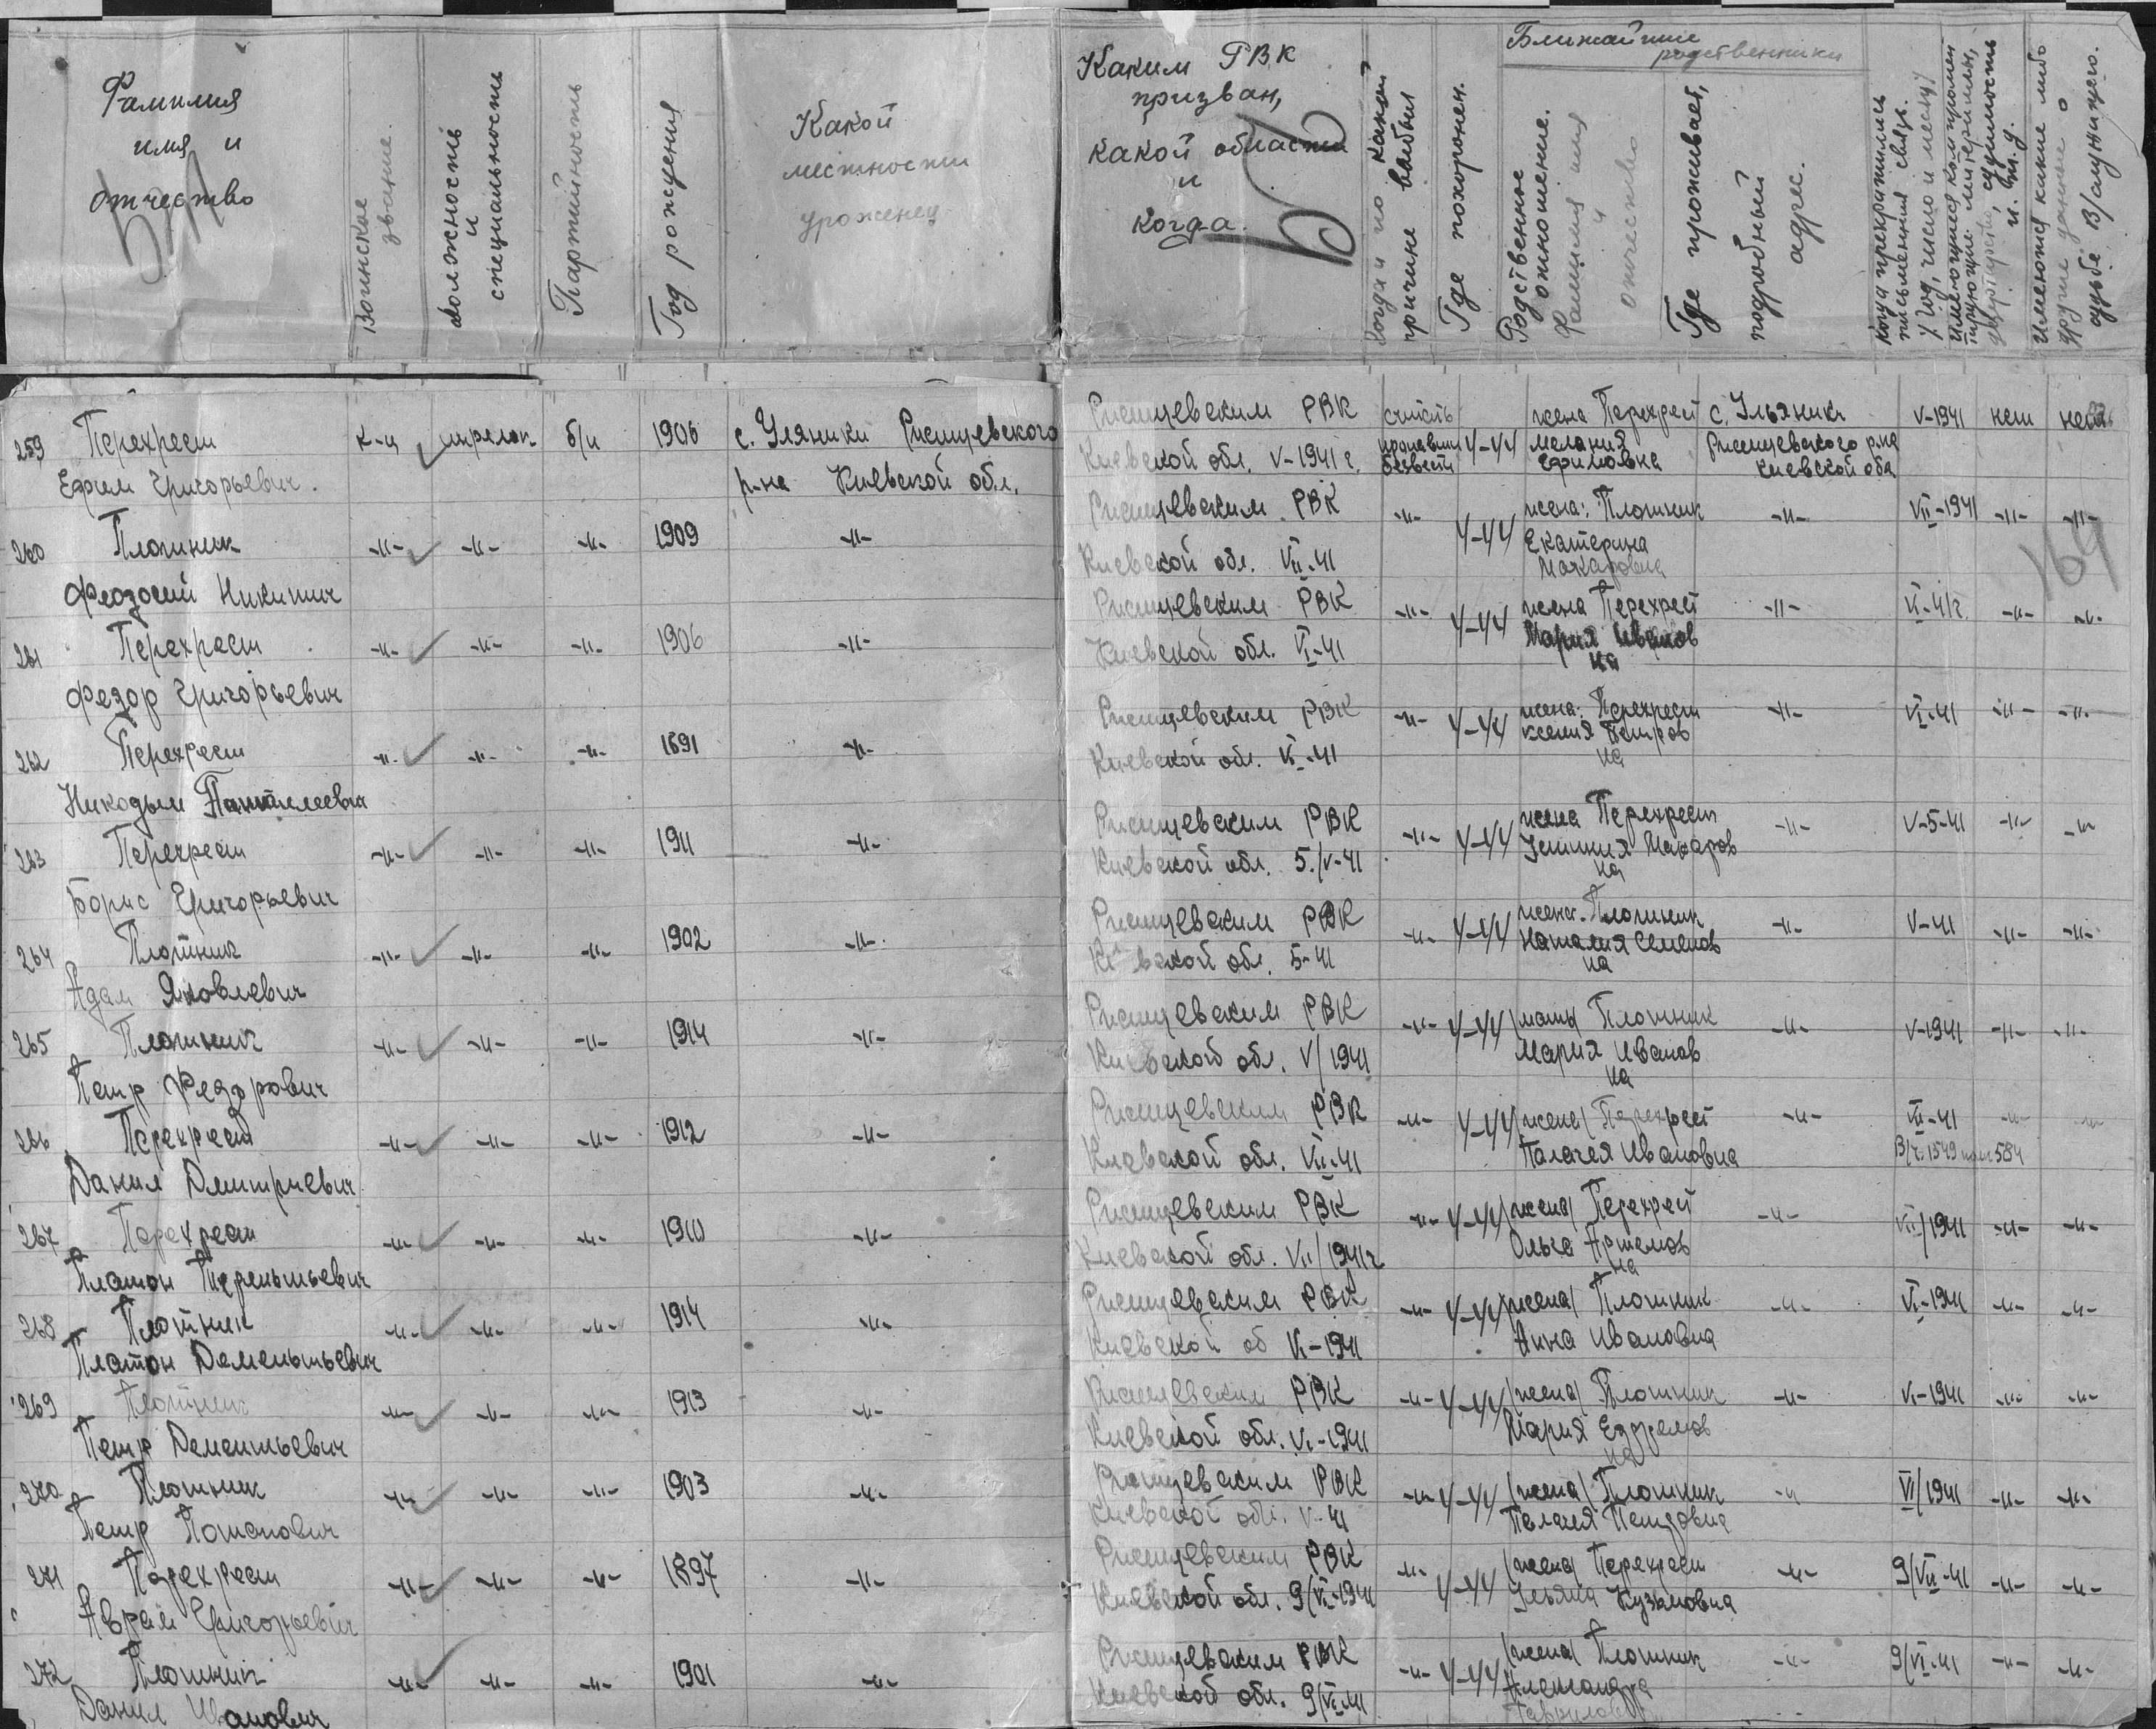 Фамилия
имя и
отчество
Воинское
звание.
Должность
и
специальность
Партийность
Год рождения
Какой
местности
уроженец
Каким РВК
призван,
какой области
и
когда.
Когда и по какой
причине выбыл
Где похоронен.
Ближайшие
родственники
Родственные
отношение.
Фамилия имя
и
отчество
Где проживает,
подробный
адрес.
Когда прекратилась
письменная связь.
/год, число и месяц/
судимость
и т.д.
Имеются какие либо
другие данные о
судьбе в/служащего.
259 Перехрест к-ц стрелок б/п 1906 с. Уляники Ржищевского Ржищевским РВК считать жена Перехрест с. Ульяники V-1941 нет нет
Ефрем Григорьевич. р-на Киевской обл. Киевской обл. V-1941 г. пропавшим безвести 4-44 Мелания Ефимовна Ржищевского р-на Киевской обл
164
260 Плотник -"- -"- -"- 1909 -"- Ржищевским РВК -"- 4-44 жена: Плотник -"- VII-1941 -"- -"-
Феодосий Никитич Киевской обл. VII-41 Екатерина
Макаровна
261 Перехрест -"- -"- -"- 1906 -"- Ржищевским РВК -"- 4-44 жена Перехрест -"- VI-41г. -"- -"-
Федор Григорьевич Киевской обл. VI-41 Мария Иванов
на
262 Перехрест -"- -"- -"- 1891 -"- Ржищевским РВК -"- 4-44 жена: Перехрест -"- VI-41 -"- -"-
Никодым Пантилеевич Киевской обл. VI-41 Ксения Петров
на
263 Перехрест -"- -"- -"- 1911 -"- Ржищевским РВК -"- 4-44 жена Перехрест -"- V-5-41 -"- -"-
Борис Григорьевич Киевской обл. 5./V-41 Устиния Макаров
на
264 Плотник -"- -"- -"- 1902 -"- Ржищевским РВК -"- 4-44 жена: Плотник -"- V-41 -"- -"-
Адам Яковлевич Киевской обл. 5-41 Наталия Семенов
на
265 Плотник -"- -"- -"- 1914 -"- Ржищевским РВК -"- 4-44 /мать/ Плотник -"- V-1941 -"- -"-
Петр Федорович Киевской обл. V/1941 Мария Иванов
на
266 Перехрест -"- -"- -"- 1912 -"- Ржищевским РВК -"- 4-44 /жена/ Перехрест -"- VII-41 -"- -"-
Данил Дмитриевич Киевской обл. VII-41 Палагея Ивановна В/ч. 1549 584
267 Перехрест -"- -"- -"- 1910 -"- Ржищевским РВК -"- 4-44 /жена/ Перехрест -"- VII/1941 -"- -"-
Платон Терентьевич Киевской обл. VII/1941г Ольга Артемов
на
268 Плотник -"- -"- -"- 1914 -"- Ржищевским РВК -"- 4-44 /жена/ Плотник -"- VI-1941 -"- -"-
Платон Дементьевич Киевской об VI-1941 Анна Ивановна
269 Плотник -"- -"- -"- 1913 -"- Ржищевским РВК -"- 4-44 /жена/ Плотник -"- VI-1941 -"- -"-
Петр Дементьевич Киевской обл. VI-1941 Мария Ефремов
на
270 Плотник -"- -"- -"- 1903 -"- Ржищевским РВК -"- 4-44 /жена/ Плотник -"- VI/1941 -"- -"-
Петр Потапович Киевской обл. V-41 Пелагея Петровна
271 Перехрест -"- -"- -"- 1897 -"- Ржищевским РВК -"- 4-44 /жена/ Перехрест -"- 9/VII-41 -"- -"-
Аврам Григорьевич Киевской обл. 9/VI-1941 Ульяна Кузьмовна
272 Плотник -"- -"- -"- 1901 -"- Ржищевским РВК -"- 4-44 /жена/ Плотник -"- 9/VI-41 -"- -"-
Данил Иванович Киевской обл. 9/VI-41 Александра
Гавриловна